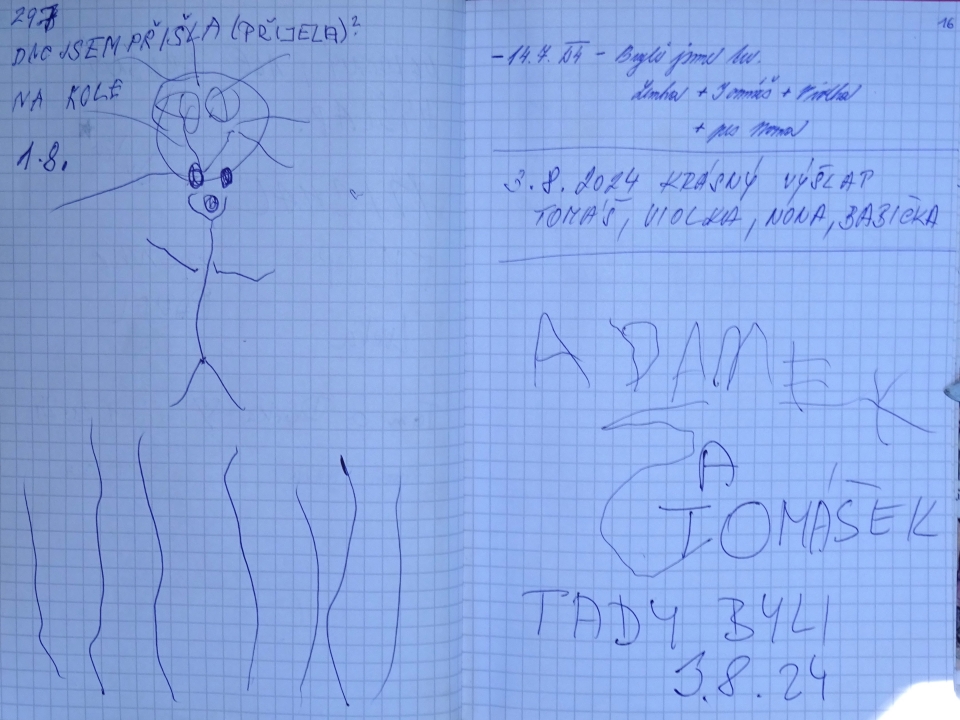 29.7
DNC JSEM PŘIŠLA (PŘIJELA)?
NA KOLE
1.8.
16
-14.7. - Byli jsme
+ Tomáš +
+ pes
3.8.2024 KRÁSNÝ VÝŠLAP
TOMÁŠ, VIOLKA, NONA, BABIČKA
ADAMEK
A
TOMÁŠEK
TADY BYLI
3.8.24